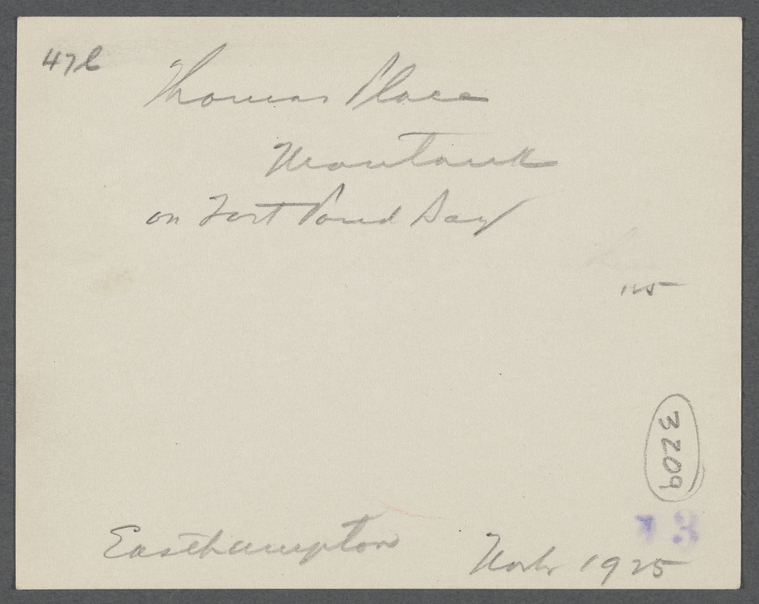 47b
Thomas Place
Montauk
on Fort Pond Bay
115
3209
13
Easthampton
1925